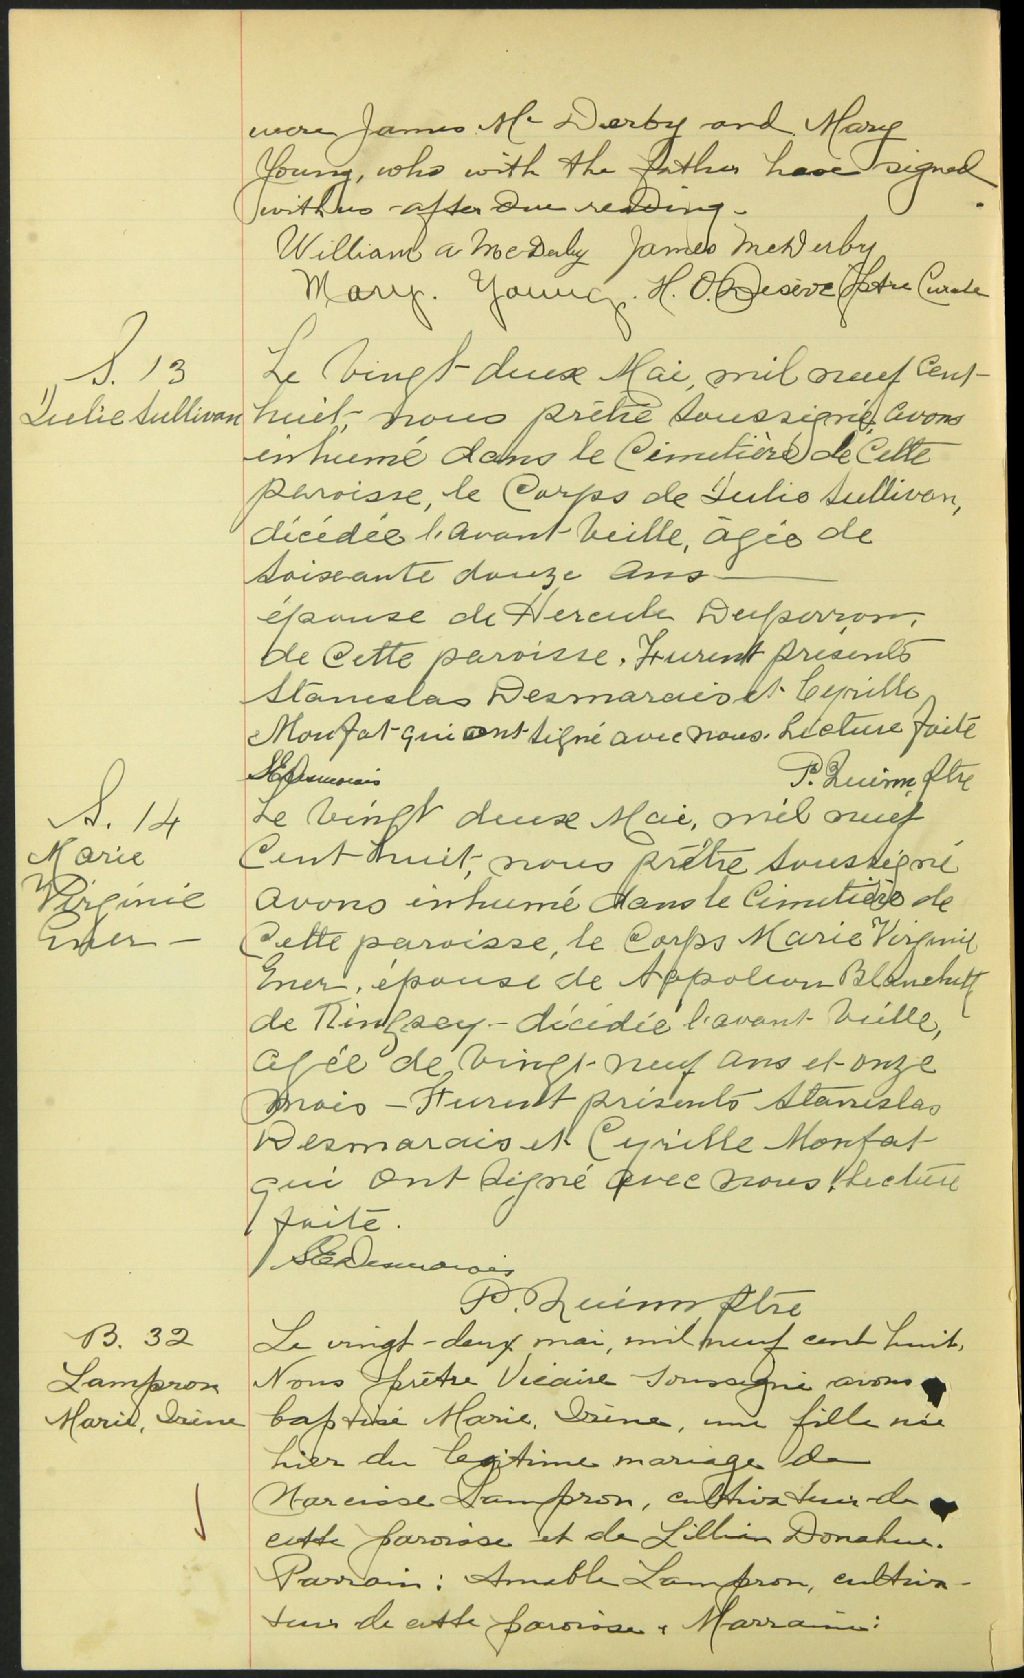 were James Mc Derby and Mary
Young, who with the father have signed
with us after due reading.
William a McDerby James McDerby
Mary. Young. H. O. Desève Ptre Curate
S. 13
Julie Sullivan
Le Vingt-deux Mai, mil neuf Cent-
huit, nous prêtre soussigné, avons
inhumé dans le Cimetière de Cette
paroisse, le Corps de Julie Sullivan,
décédée l'avant-Veille, âgée de
Soixante douze ans
épouse de Hercule Duperron,
de Cette paroisse. Furent présents
Stanislas Desmarais et Cyrille
Monfat qui ont signé avec nous. Lecture faite
SEDesmarais P. Quinn, Ptre
S. 14
Marie
Virginie
Ener -
Le Vingt deux Mai, mil neuf
Cent huit, nous prêtre soussigné
avons inhumé dans le Cimetière de
Cette paroisse, le Corps Marie Virginie
Ener, épouse de Appoleon Blanchette
de Kingsey - décédée l'avant Veille,
agée de Vingt-neuf ans et onze
mois - Furent présents Stanislas
Desmarais et Cyrille Monfat
qui ont signé avec nous. Lecture
faite.
SEDesmarais
P. Quinn Ptre
B. 32
Lampron
Marie, Irène
Le vingt-deux mai, mil neuf cent huit,
Nous prêtre Vicaire soussigné avons
baptisé Marie, Irène, une fille née
hier du legitime mariage de
Narcisse Lampron, cultivateur de
cette paroisse et de Lillian Donahue.
Parrain: Amable Lampron, cultiva-
teur de cette paroisse, Marraine: